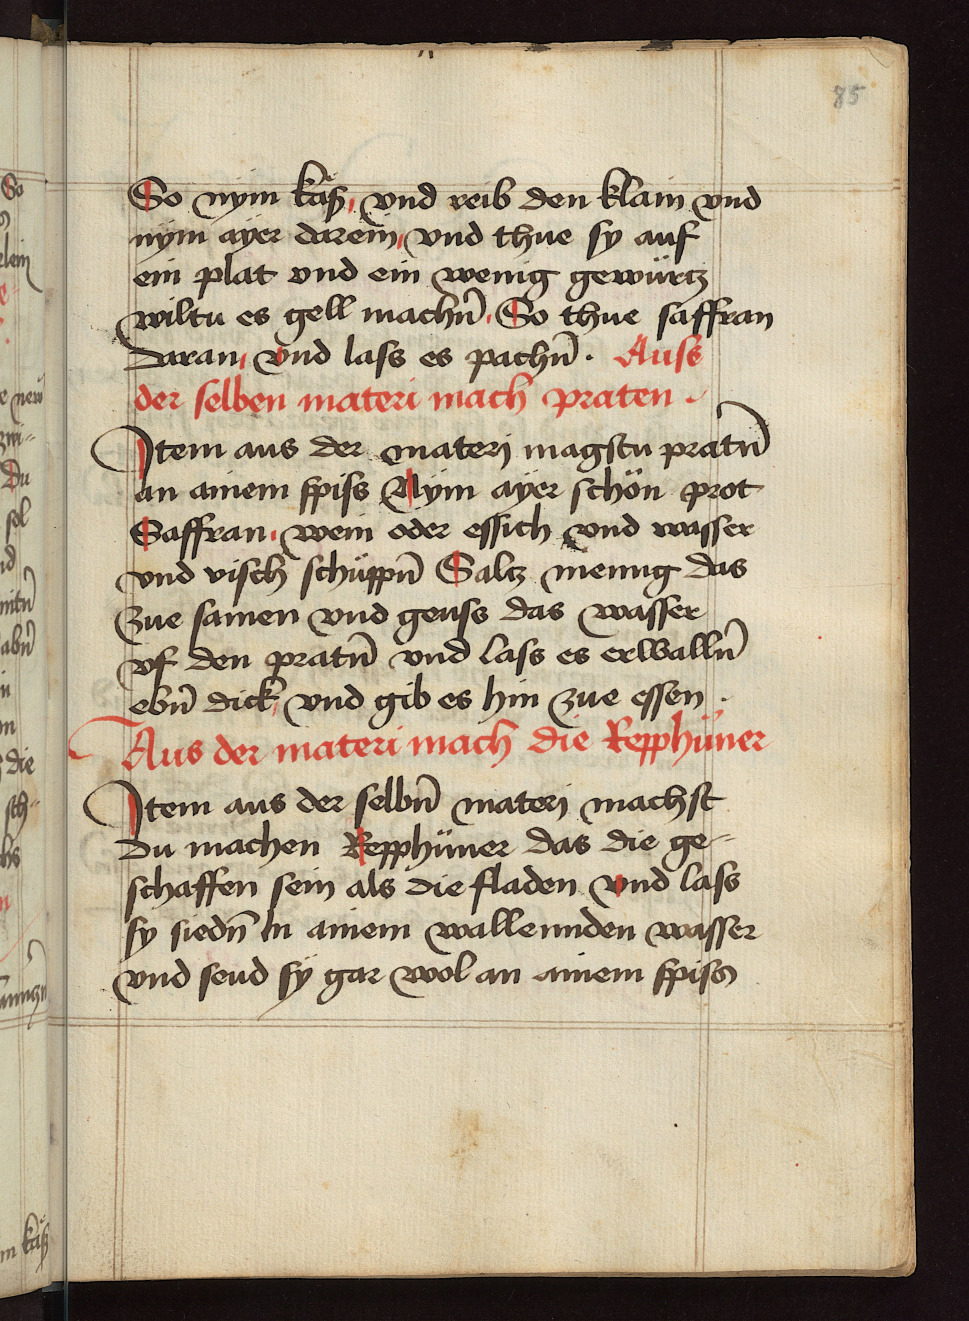 85
So nym käß, vnd reib den klain vnd
nym ayer darein, vnd thue sy auf
ein plat vnd ein wenig gewürtz
wiltu es gell machn̄. So thue saffran
daran, vnd lass es pachn̄. Auss
der selben materi mach praten.
Item aus der materj magstu pratn̄
an ainem spiss Nym ayer schön prot
Saffran, wein oder essich vnd wasser
vnd visch schüppn̄ Saltz meng das
zue samen vnd geuss das wasser
vf den pratn̄ vnd lass es erwalln̄
ebn̄ dick, vnd gib es hin zue essen.
Aus der materi mach die Repphüner
Item aus der selbn̄ materj machst
du machen Repphüner das die ge-
schaffen sein als die fladen vnd lass
sy siedn̄ in ainem wallennden wasser
vnd seud sy gar wol an ainem spiss